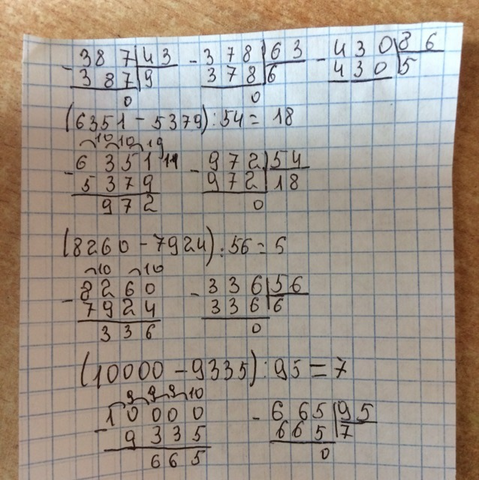 - 387 | 43 - 378 | 63 - 430 | 86
387 | 9 378 | 6 430 | 5
0 0
(6351 - 5379) : 54 = 18
10 10 19
- 6351 11 - 972 | 54
5379 972 | 18
972 0
(8260 - 7924) : 56 = 6
10 10
- 8260 - 336 | 56
7924 336 | 6
336 0
(10000 - 9335) : 95 = 7
9 9 9 10
- 10000 - 665 | 95
9335 665 | 7
665 0